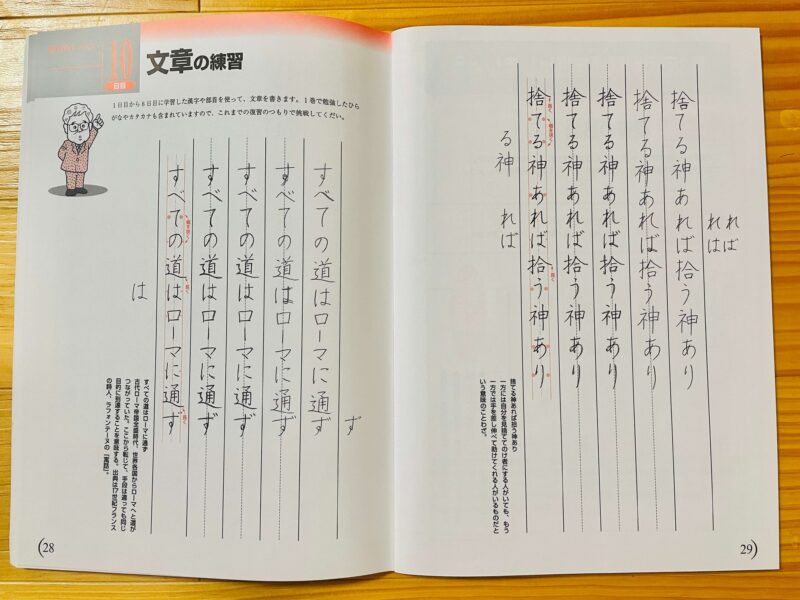 10
日目
文章の練習
1日目から8日目に学習した漢字や部首を使って、文章を書きます。1巻で勉強したひら
がなやカタカナも含まれていますので、これまでの復習のつもりで挑戦してください。
ず
すべての道はローマに通ず
すべての道はローマに通ず
すべての道はローマに通ず
すべての道はローマに通ず
すべての道はローマに通ず
は
すべての道はローマに通ず
古代ローマ帝国全盛時代、世界各国からローマへと道が
つながっていた。ここから転じて、手段は違っても同じ
目的に到達することを意味する。出典は17世紀フランス
の詩人、ラフォンテーヌの『寓話』。
28
れば
れは
捨てる神あれば拾う神あり
捨てる神あれば拾う神あり
捨てる神あれば拾う神あり
捨てる神あれば拾う神あり
捨てる神あれば拾う神あり
る神 れば
捨てる神あれば拾う神あり
一方には自分を見捨ててのけ者にする人がいても、もう
一方では手を差し伸べて助けてくれる人がいるものだと
いう意味のことわざ。
29